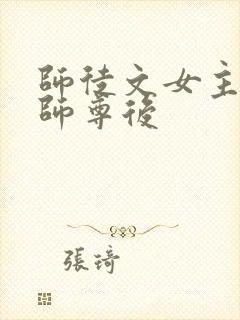 師徒文女主
師尊後
張琦